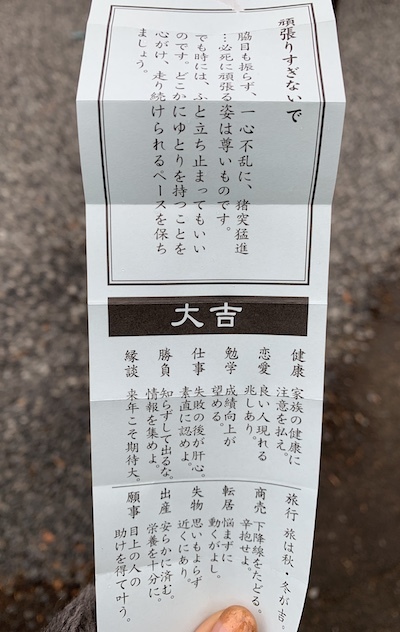 頑張りすぎないで
脇目も振らず、一心不乱に、猪突猛進
…必死に頑張る姿は尊いものです。
でも時には、ふと立ち止まってもいい
のです。どこかにゆとりを持つことを
心がけ、走り続けられるペースを保ち
ましょう。
大吉
健康 家族の健康に
注意を払え。
恋愛 良い人現れる
兆しあり。
勉学 成績向上が
望める。
仕事 失敗の後が肝心。
素直に認めよ。
勝負 知らずして出るな。
情報を集めよ。
縁談 来年こそ期待大。
旅行 旅は秋、冬が吉。
商売 下降線をたどる。
辛抱せよ。
転居 悩まずに
動くがよし。
失物 思いもよらず
近くにあり。
出産 安らかに済む。
栄養を十分に。
願事 目上の人の
助けを得て叶う。